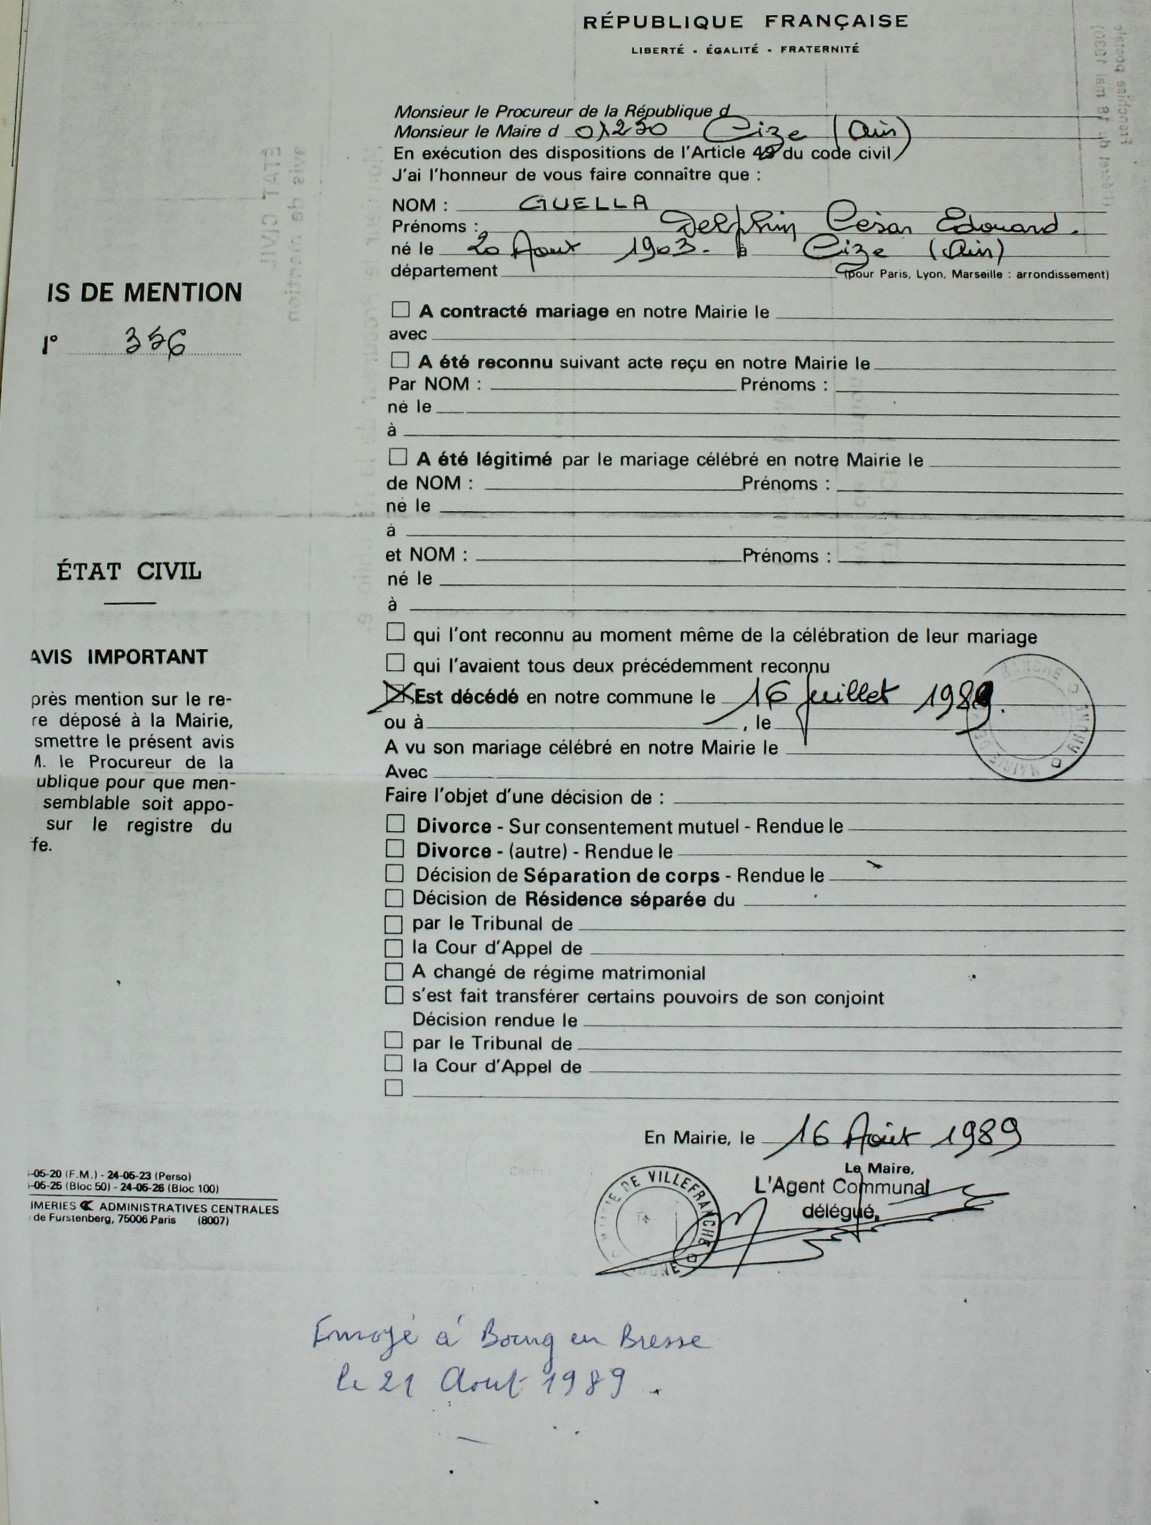 RÉPUBLIQUE FRANÇAISE
LIBERTÉ - ÉGALITÉ - FRATERNITÉ
Monsieur le Procureur de la République d
Monsieur le Maire d 01250 Cize (Ain)
En exécution des dispositions de l'Article 49 du code civil
J'ai l'honneur de vous faire connaître que :
NOM : GUELLA
Prénoms : Delphin César Edouard.
né le 20 Aout 1903. à Cize (Ain)
département (pour Paris, Lyon, Marseille : arrondissement)
IS DE MENTION
1° 356
A contracté mariage en notre Mairie le
avec
A été reconnu suivant acte reçu en notre Mairie le
Par NOM : Prénoms :
né le
à
A été légitimé par le mariage célébré en notre Mairie le
de NOM : Prénoms :
né le
à
et NOM : Prénoms :
né le
à
qui l'ont reconnu au moment même de la célébration de leur mariage
qui l'avaient tous deux précédemment reconnu
Est décédé en notre commune le 16 Juillet 1989.
ou à , le
A vu son mariage célébré en notre Mairie le
Avec
Faire l'objet d'une décision de :
Divorce - Sur consentement mutuel - Rendue le
Divorce - (autre) - Rendue le
Décision de Séparation de corps - Rendue le
Décision de Résidence séparée du
par le Tribunal de
la Cour d'Appel de
A changé de régime matrimonial
s'est fait transférer certains pouvoirs de son conjoint
Décision rendue le
par le Tribunal de
la Cour d'Appel de
ÉTAT CIVIL
AVIS IMPORTANT
près mention sur le re-
re déposé à la Mairie,
smettre le présent avis
M. le Procureur de la
ublique pour que men-
semblable soit appo-
sur le registre du
fe.
En Mairie, le 16 Août 1989
Le Maire,
L'Agent Communal
délégué,
MAIRIE DE VILLEFRANCHE
-05-20 (F.M.) - 24-05-23 (Perso)
-05-25 (Bloc 50) - 24-05-26 (Bloc 100)
IMERIES ADMINISTRATIVES CENTRALES
de Furstenberg, 75006 Paris (8007)
Envoyé à Bourg en Bresse
le 21 Aout 1989.